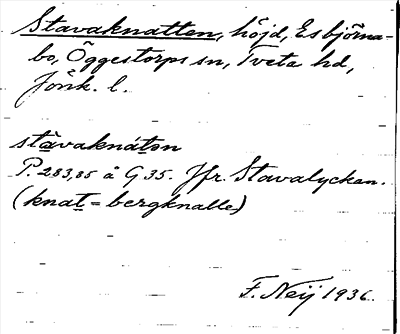 Stavaknatten, höjd, Esbjörna-
bo, Öggestorps sn, Tveta hd,
Jönk. l.
stàvaknátən
P. 283,85 å G 35. Jfr. Stavalycken.
(knat = bergknalle)
F. Neij 1936.